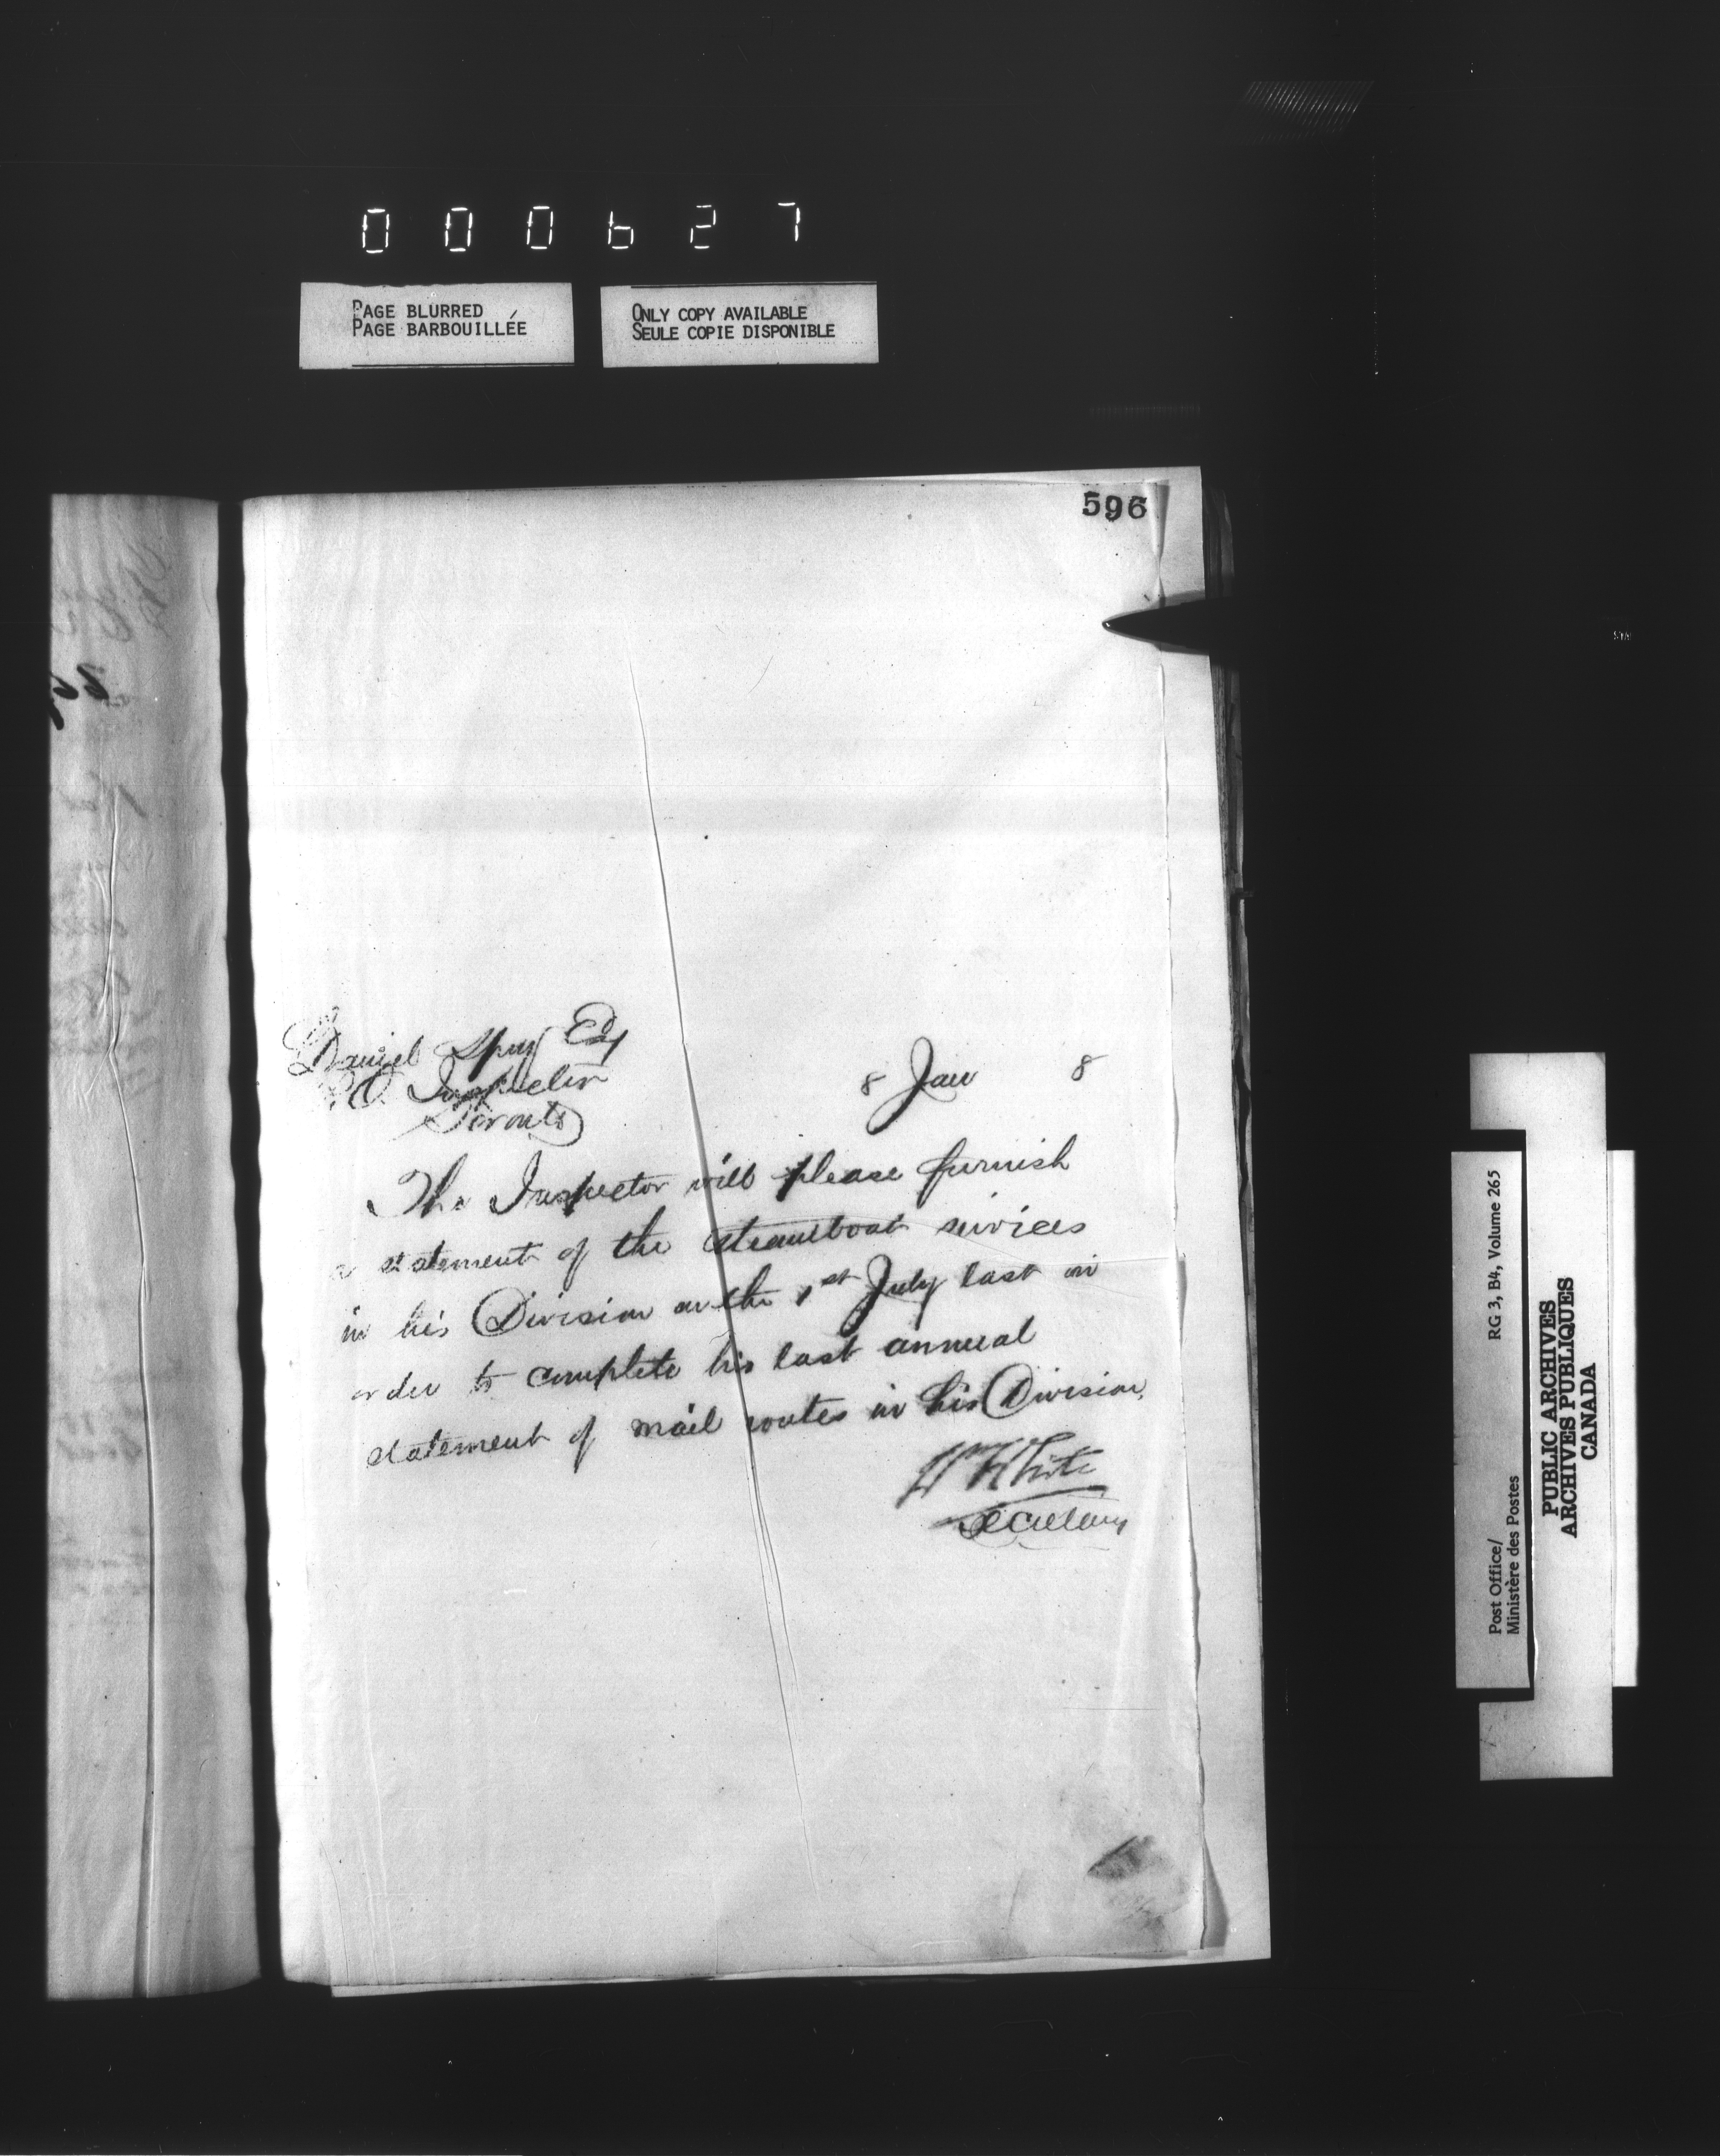 000627
PAGE BLURRED
PAGE BARBOUILLÉE
ONLY COPY AVAILABLE
SEULE COPIE DISPONIBLE
596
Daniel Spry Esq
P.O. Inspector
Toronto
8 Jan 8
The Inspector will please furnish
a statement of the steamboat services
in his Division on the 1st July last in
order to complete his last annual
statement of mail routes in his Division.
Wm White
Secretary
Post Office/ RG 3, B4, Volume 265
Ministère des Postes
PUBLIC ARCHIVES
ARCHIVES PUBLIQUES
CANADA